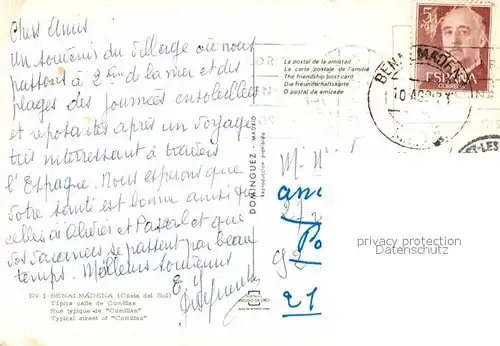 Chers Amis
Un souvenir du village où nous
passons à 2 Km de la mer et des
plages des journées ensoleillées
et reposantes après un voyage
très intéressant à travers
l'Espagne. Nous espérons que
votre santé est bonne ainsi que
celles d'Olivier et Pascal et que
vos vacances se passent par beau
temps. Meilleurs souvenirs
Nº 1 BENALMÁDENA (Costa del Sol)
Típica calle de Comillas
Rue typique de "Comillas"
Typical street of "Comillas"
DOMINGUEZ MADRID
Reproducción prohibida
La postal de la amistad
La carte postale de l'amitié
The friendship post card
Die Freundschaftskarte
O postal da amizade
5
ESPAÑA
CORREOS
BENALMADENA
10 AGO
M.
27
92
21
privacy protection
datenschutz